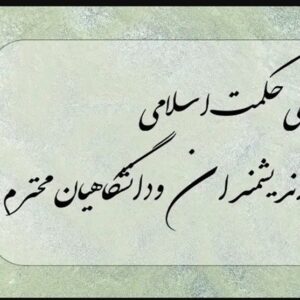 حکمت اسلامی
اندیشمندان و دانشگاهیان محترم